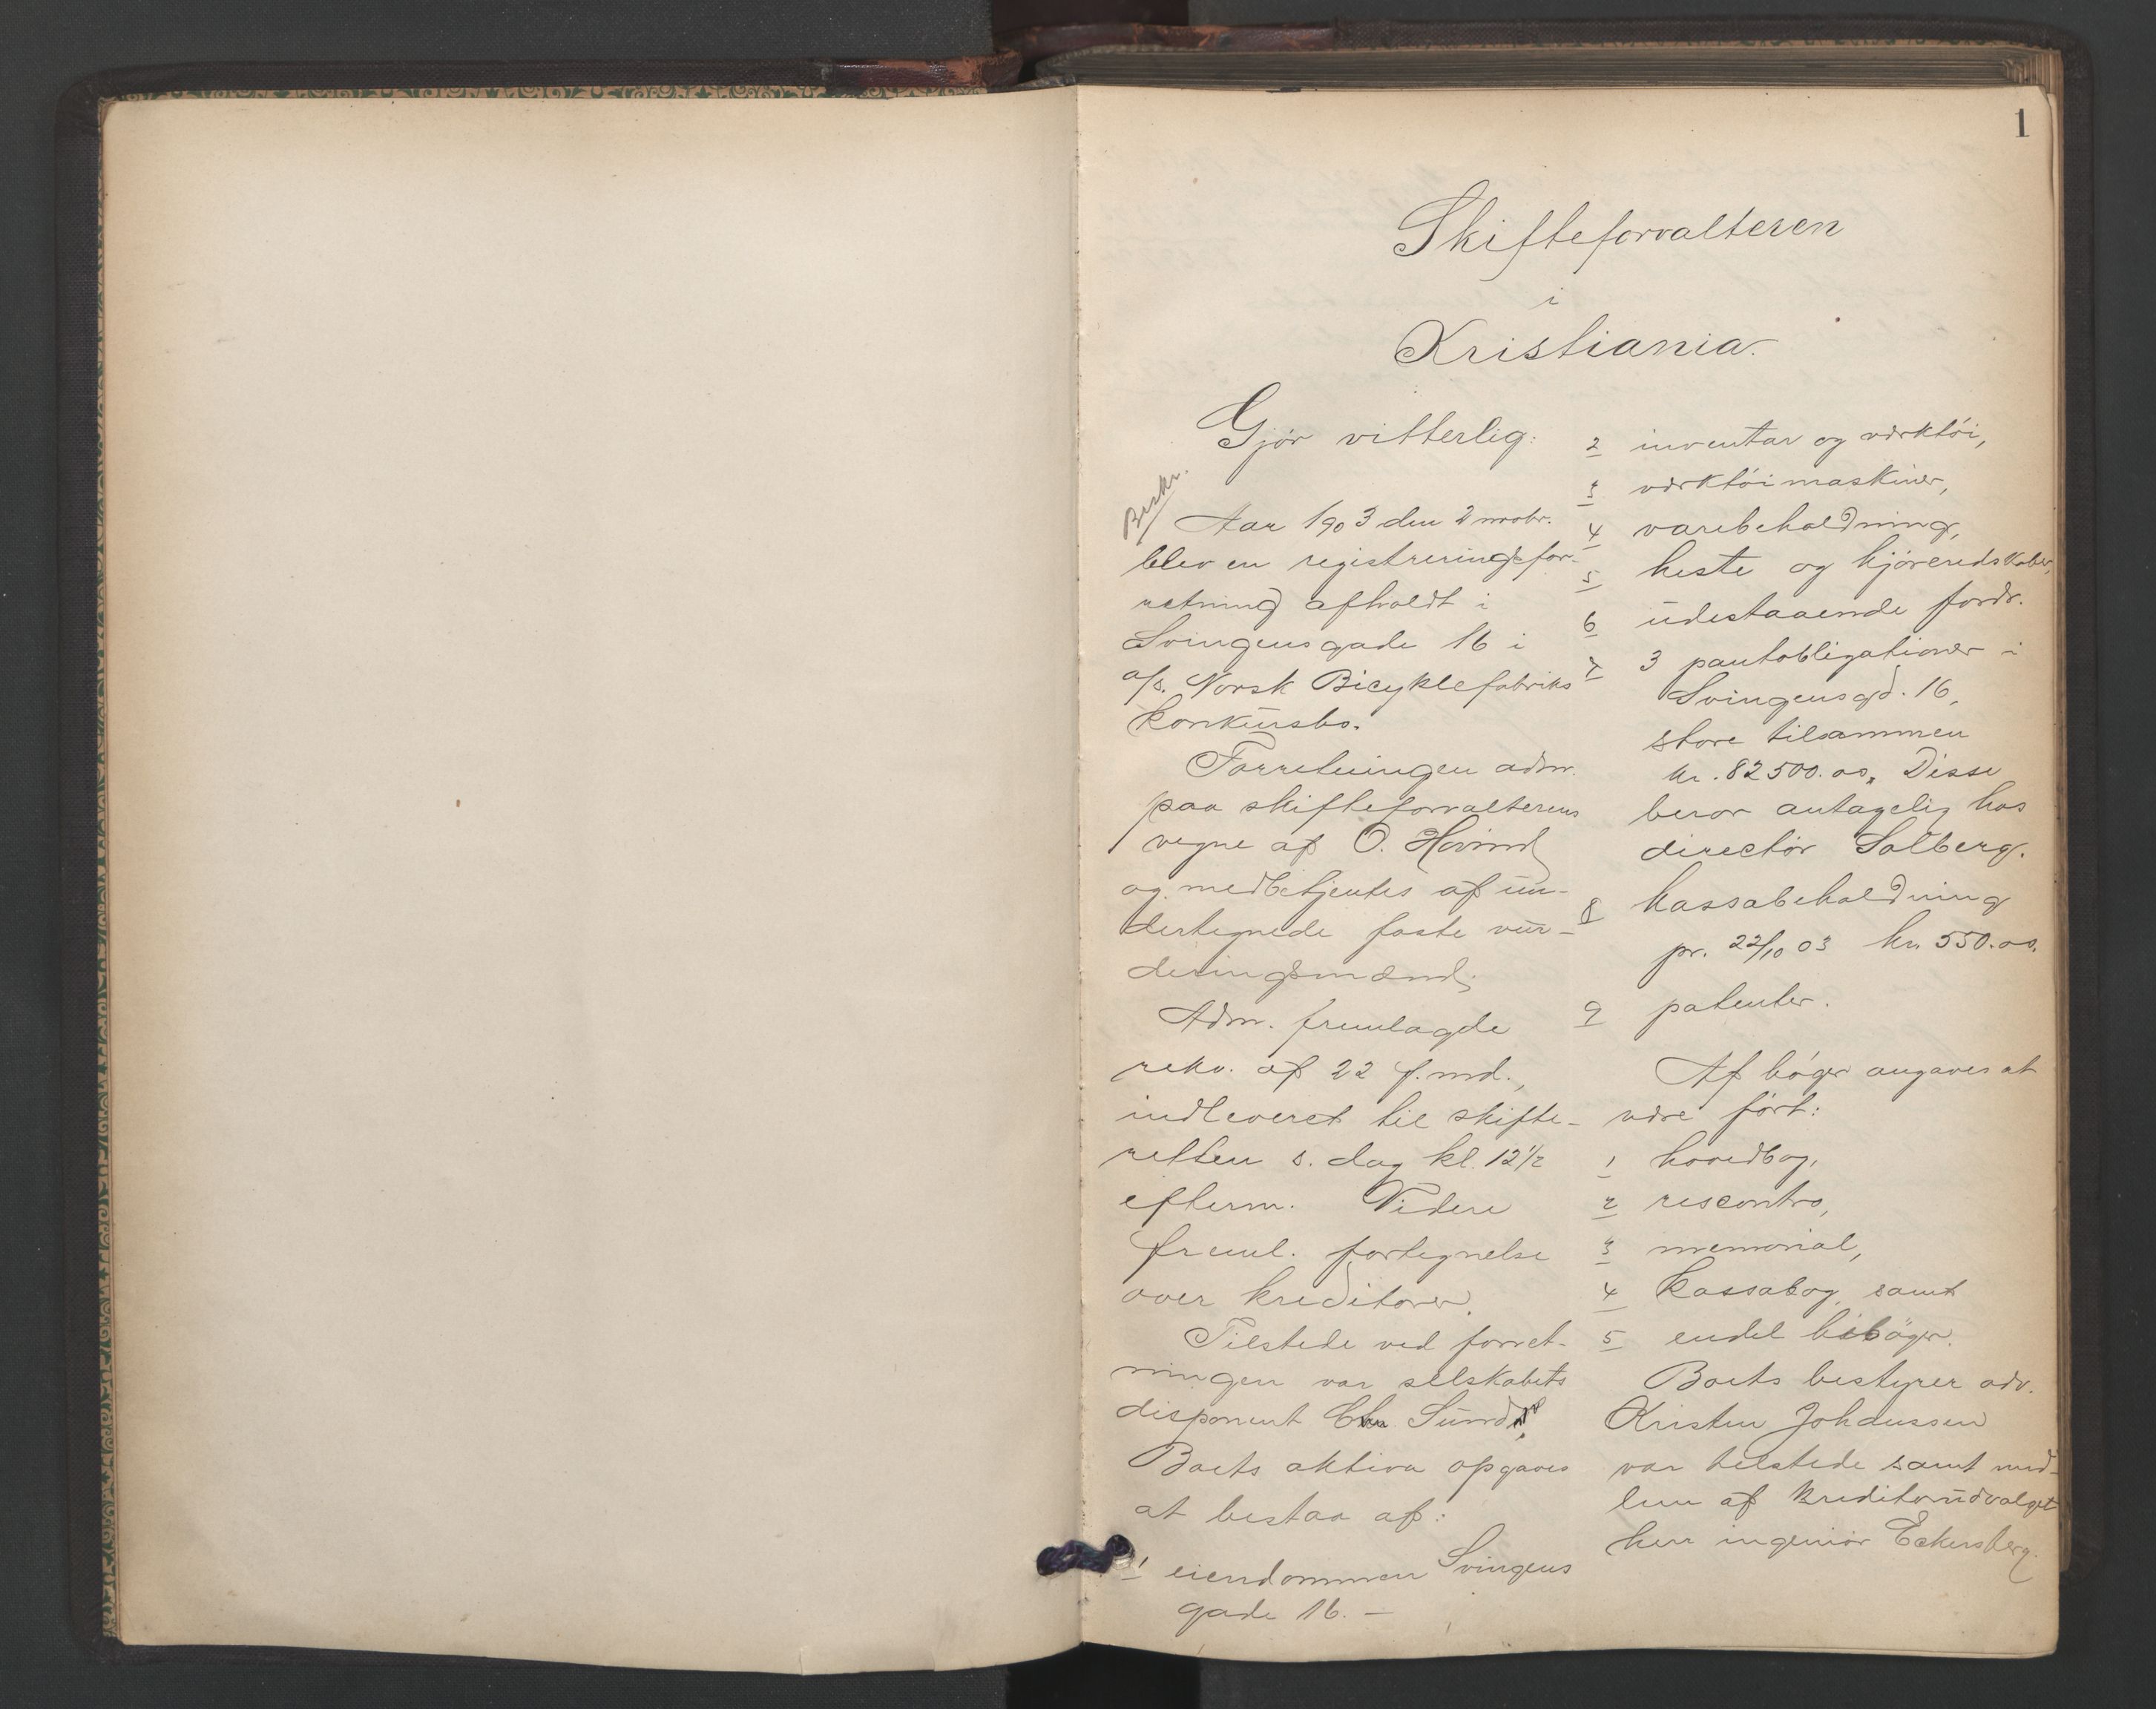 1
Skifteforvalteren
i
Kristiania.
Gjör vitterlig:
Beskr.
Aar 1903 den 2 novbr.
blev en registreringsfor-
retning afholdt i
Svingensgade 16 i
a/s. Norsk Bicyklefabriks
konkursbo.
Forretningen adm.
paa skifteforvalterens
vegne af O. Hovind
og medbetjentes af un-
dertegnede faste vur-
deringsmænd.
Adm. fremlagde
rekv. af 22 f. md.,
indleveret til skifte-
retten s. dag kl. 12½
efterm. Videre
freml. fortegnelse
over kreditorer.
Tilstede ved forret-
ningen var selskabets
disponent Chr. Sundt.
Boets aktiva opgaves
at bestaa af:
1 eiendommen Svingens
gade 16. —
2 inventar og værktöi,
3 værktöimaskiner,
4 varebeholdning,
5 heste og kjöreredskaber,
6 udestaaende fordr.
7 3 pantobligationer i
Svingensgd. 16,
store tilsammen
kr. 82500.00. Disse
beror antagelig hos
direktör Solberg.
8 kassabeholdning
pr. 22/10 03 kr. 550.00.
9 patenter.
Af böger angaves at
være fört:
1 hovedbog,
2 rescontro,
3 memorial,
4 kassabog, samt
5 endel biböger.
Boets bestyrer adv.
Kristen Johanssen
var tilstede samt med-
lem af kreditorudvalget
herr ingeniör Eckersberg.